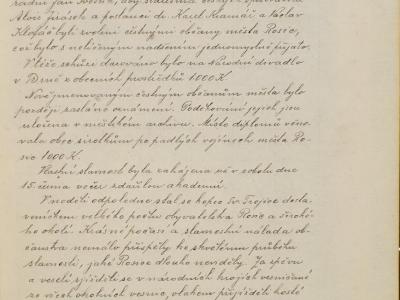 Alois Jirásek a poslanci dr. Karel Kramář a Václav
Klofáč byli zvoleni čestnými občany města Rosic,
což bylo s neličeným nadšením jednomyslně přijato.
V téže schůzi darováno bylo na Národní divadlo
v Brně z obecních prostředků 1000 K.
Nově jmenovaným čestným občanům města bylo
později zasláno oznámení. Poděkování jejich jsou
uložena v městském archivu. Místo diplomů věno-
vala obec sirotkům po padlých vojínech města Ro-
sic 1000 K.
Vlastní slavnost byla zahájena již v sobotu dne
15. června večer zdařilou akademií.
V neděli odpoledne stal se kopec Sv. Trojice dosta-
veníčkem velkého počtu obyvatelstva Rosic a široké-
ho okolí. Krásné počasí a slavnostní nálada ob-
čanstva nemálo přispěly ke skvělému průběhu
slavnosti, jaké Rosice dlouho neviděly. Za zpěvu
a veselí sjížděli se v národních krojích vesničané
ze všech okolních vesnic, vlakem přijížděli hosté